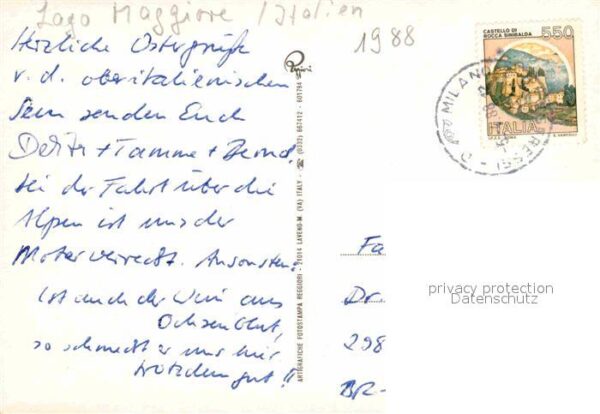 Lago Maggiore / Italien
1988
Herzliche Ostergrüße
v. d. oberitalienischen
Seen senden Euch
+ Tamme + Bernd.
Bei der Fahrt über die
Alpen ist uns der
Motor verreckt. Ansonsten:
Ist auch der Wein aus
Ochsenblut,
so schmeckt er uns hier
trotzdem gut!!
ARTIGRAFICHE FOTOSTAMPA REGGIORI - 21014 LAVENO-M. (VA) ITALY - ☎ (0332) 667412 - 601794
CASTELLO DI
ROCCA SINIBALDA
550
ITALIA
MILANO
Fa
Dr.
298
BR-
privacy protection
Datenschutz